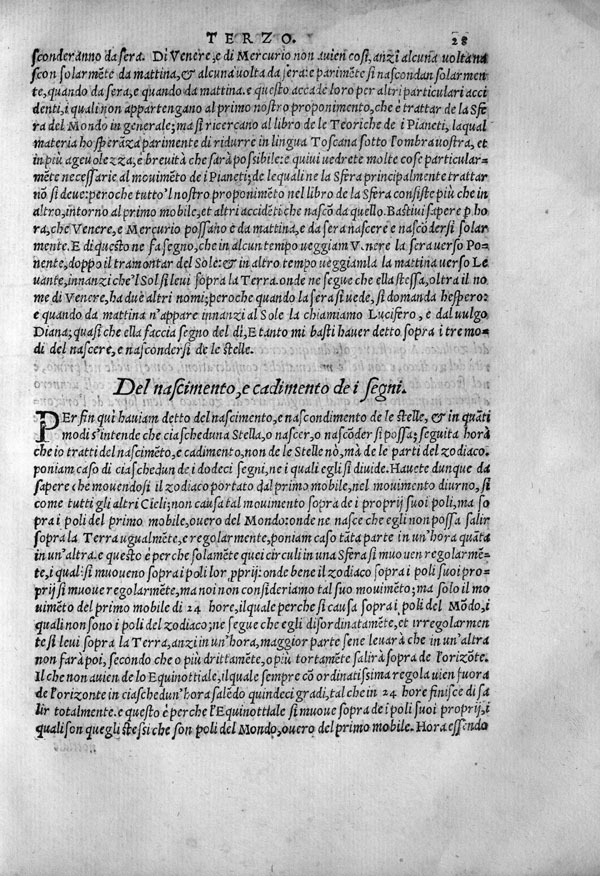 TERZO. 28
sconderanno da sera. Di Venere, e di Mercurio non auien cosi, anzi alcuna volta na
scon solarmẽte da mattina, & alcuna volta da sera: e parimẽte si nascondan solarmen
te, quando da sera, e quando da mattina. e questo accade loro per altri particulari acci
denti, i quali non appartengano al primo nostro proponimento, che è trattar de la Sfe
ra del Mondo in generale; ma si ricercano al libro de le Teoriche de i Pianeti, laqual
materia ho sperãza parimente di ridurre in lingua Toscana sotto l'ombra uostra, et
in più ageuolezza, e breuità che sarà possibile: e quiui uedrete molte cose particular-
mẽte necessarie al mouimẽto de i Pianeti; de le quali ne la Sfera principalmente trattar
nõ si deue: peroche tutto'l nostro proponimẽto nel libro de la Sfera consiste più che in
altro, intorno al primo mobile, et altri accidẽti che nascõ da quello. Bastiui sapere p hora,
che Venere, e Mercurio possano e da mattina, e da sera nascere e nascõdersi solar
mente. E di questo ne fa segno, che in alcun tempo ueggiam Venere la sera uerso Po-
nente, doppo il tramontar del Sole: & in altro tempo ueggiamla la mattina uerso Le
uante, innanzi che'l Sol si leui sopra la Terra. onde ne segue che ella stessa, oltra il no
me di Venere, ha duè altri nomi; peroche quando la sera si uede, si domanda hespero:
e quando da mattina n'appare innanzi al Sole la chiamiamo Lucifero, e dal uulgo
Diana; quasi che ella faccia segno del dì, E tanto mi basti hauer detto sopra i tre mo-
di del nascere, e nascondersi de le stelle.
Del nascimento, e cadimento de i segni.
PEr fin qui hauiam detto del nascimento, e nascondimento de le stelle, & in quãti
modi s'intende che ciascheduna Stella, o nascer, o nascõder si possa; seguita horà
che io tratti del nascimẽto, e cadimento, non de le Stelle nò, mà de le parti del zodiaco.
poniam caso di ciaschedun de i dodeci segni, ne i quali egli si diuide. Hauete dunque da
sapere che mouendosi il zodiaco portato dal primo mobile, nel mouimento diurno, sì
come tutti gli altri Cieli; non causa tal mouimento sopra de i proprij suoi poli, ma so
pra i poli del primo mobile, ouero del Mondo: onde ne nasce che egli non possa salir
sopra la Terra ugualmẽte, e regolarmente, poniam caso tãta parte in un'hora quãta
in un'altra. e questo è perche solamẽte quei circuli in una Sfera si muouen regolarmẽ-
te, i quali si muoueno sopra i poli lor pprij: onde bene il zodiaco sopra i poli suoi pro-
prij si muoue regolarmẽte, ma noi non consideriamo tal suo mouimẽto; ma solo il mo
uimẽto del primo mobile di 24 hore, il quale perche si causa sopra i poli del Mõdo, i
quali non sono i poli del zodiaco; ne segue che egli disordinatamẽte, et irregolarmen
te si leui sopra la Terra, anzi in un'hora, maggior parte sene leuarà che in un'altra
non farà poi, secõdo che o più drittamẽte, o più tortamẽte salirà sopra de l'orizõte.
Il che non auien de lo Equinottiale, il quale sempre cõ ordinatissima regola uien fuora
de l'orizonte in ciaschedun'hora salẽdo quindeci gradi, tal che in 24 hore finisce di sa
lir totalmente. e questo è perche l'Equinottiale si muoue sopra de i poli suoi proprij, i
quali son quegli stessi che son poli del Mondo, ouero del primo mobile. Hora essendo